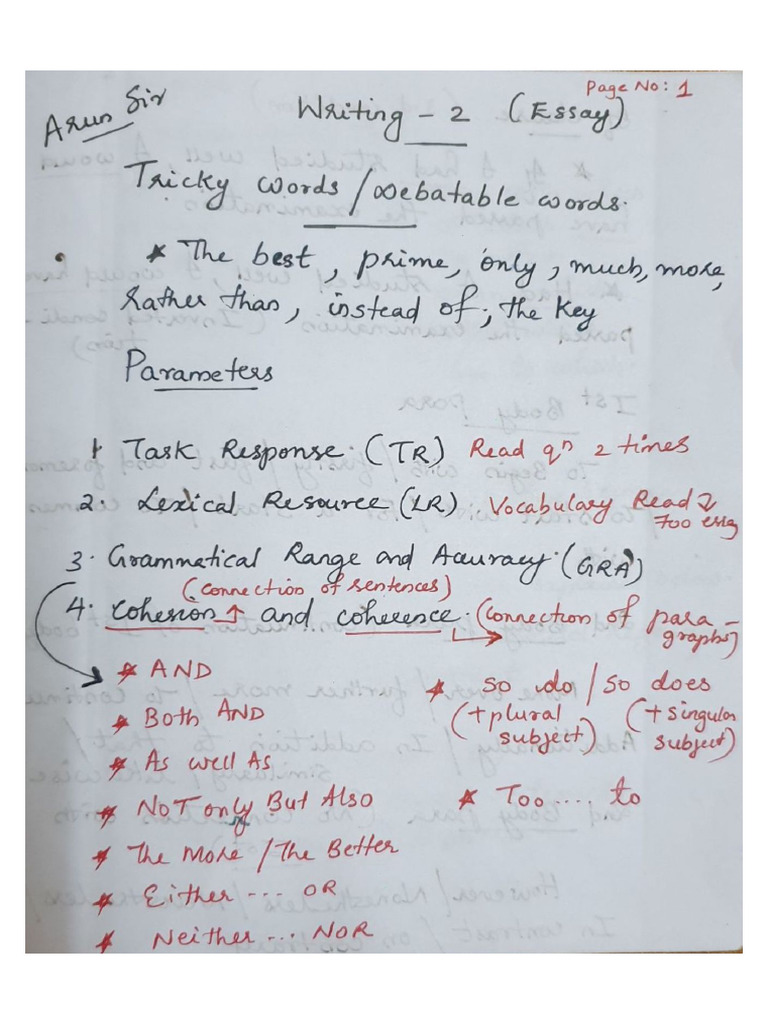 Page No: 1
Arun Sir
Writing - 2 (Essay)
Tricky words / Debatable words.
* The best, prime, only, much, more,
Rather than, instead of, the key
Parameters
1 Task Response. (TR) Read qn 2 times
2. Lexical Resource (LR). Vocabulary Read
700
3. Grammatical Range and Accuracy. (GRA)
(connection of sentences)
4. Cohesion ↑ and coherence. (connection of para-
graphs)
* AND
* Both AND
* As well As
* NOT only But Also
* The More / The Better
* Either ... OR
* Neither ... NOR
* so do / so does
(+plural subject) (+singular subject)
* Too .... to